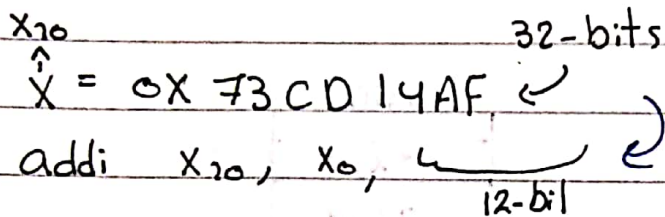 X20
32-bits
X = 0X 73CD 14AF
addi X20, X0,
12-bit